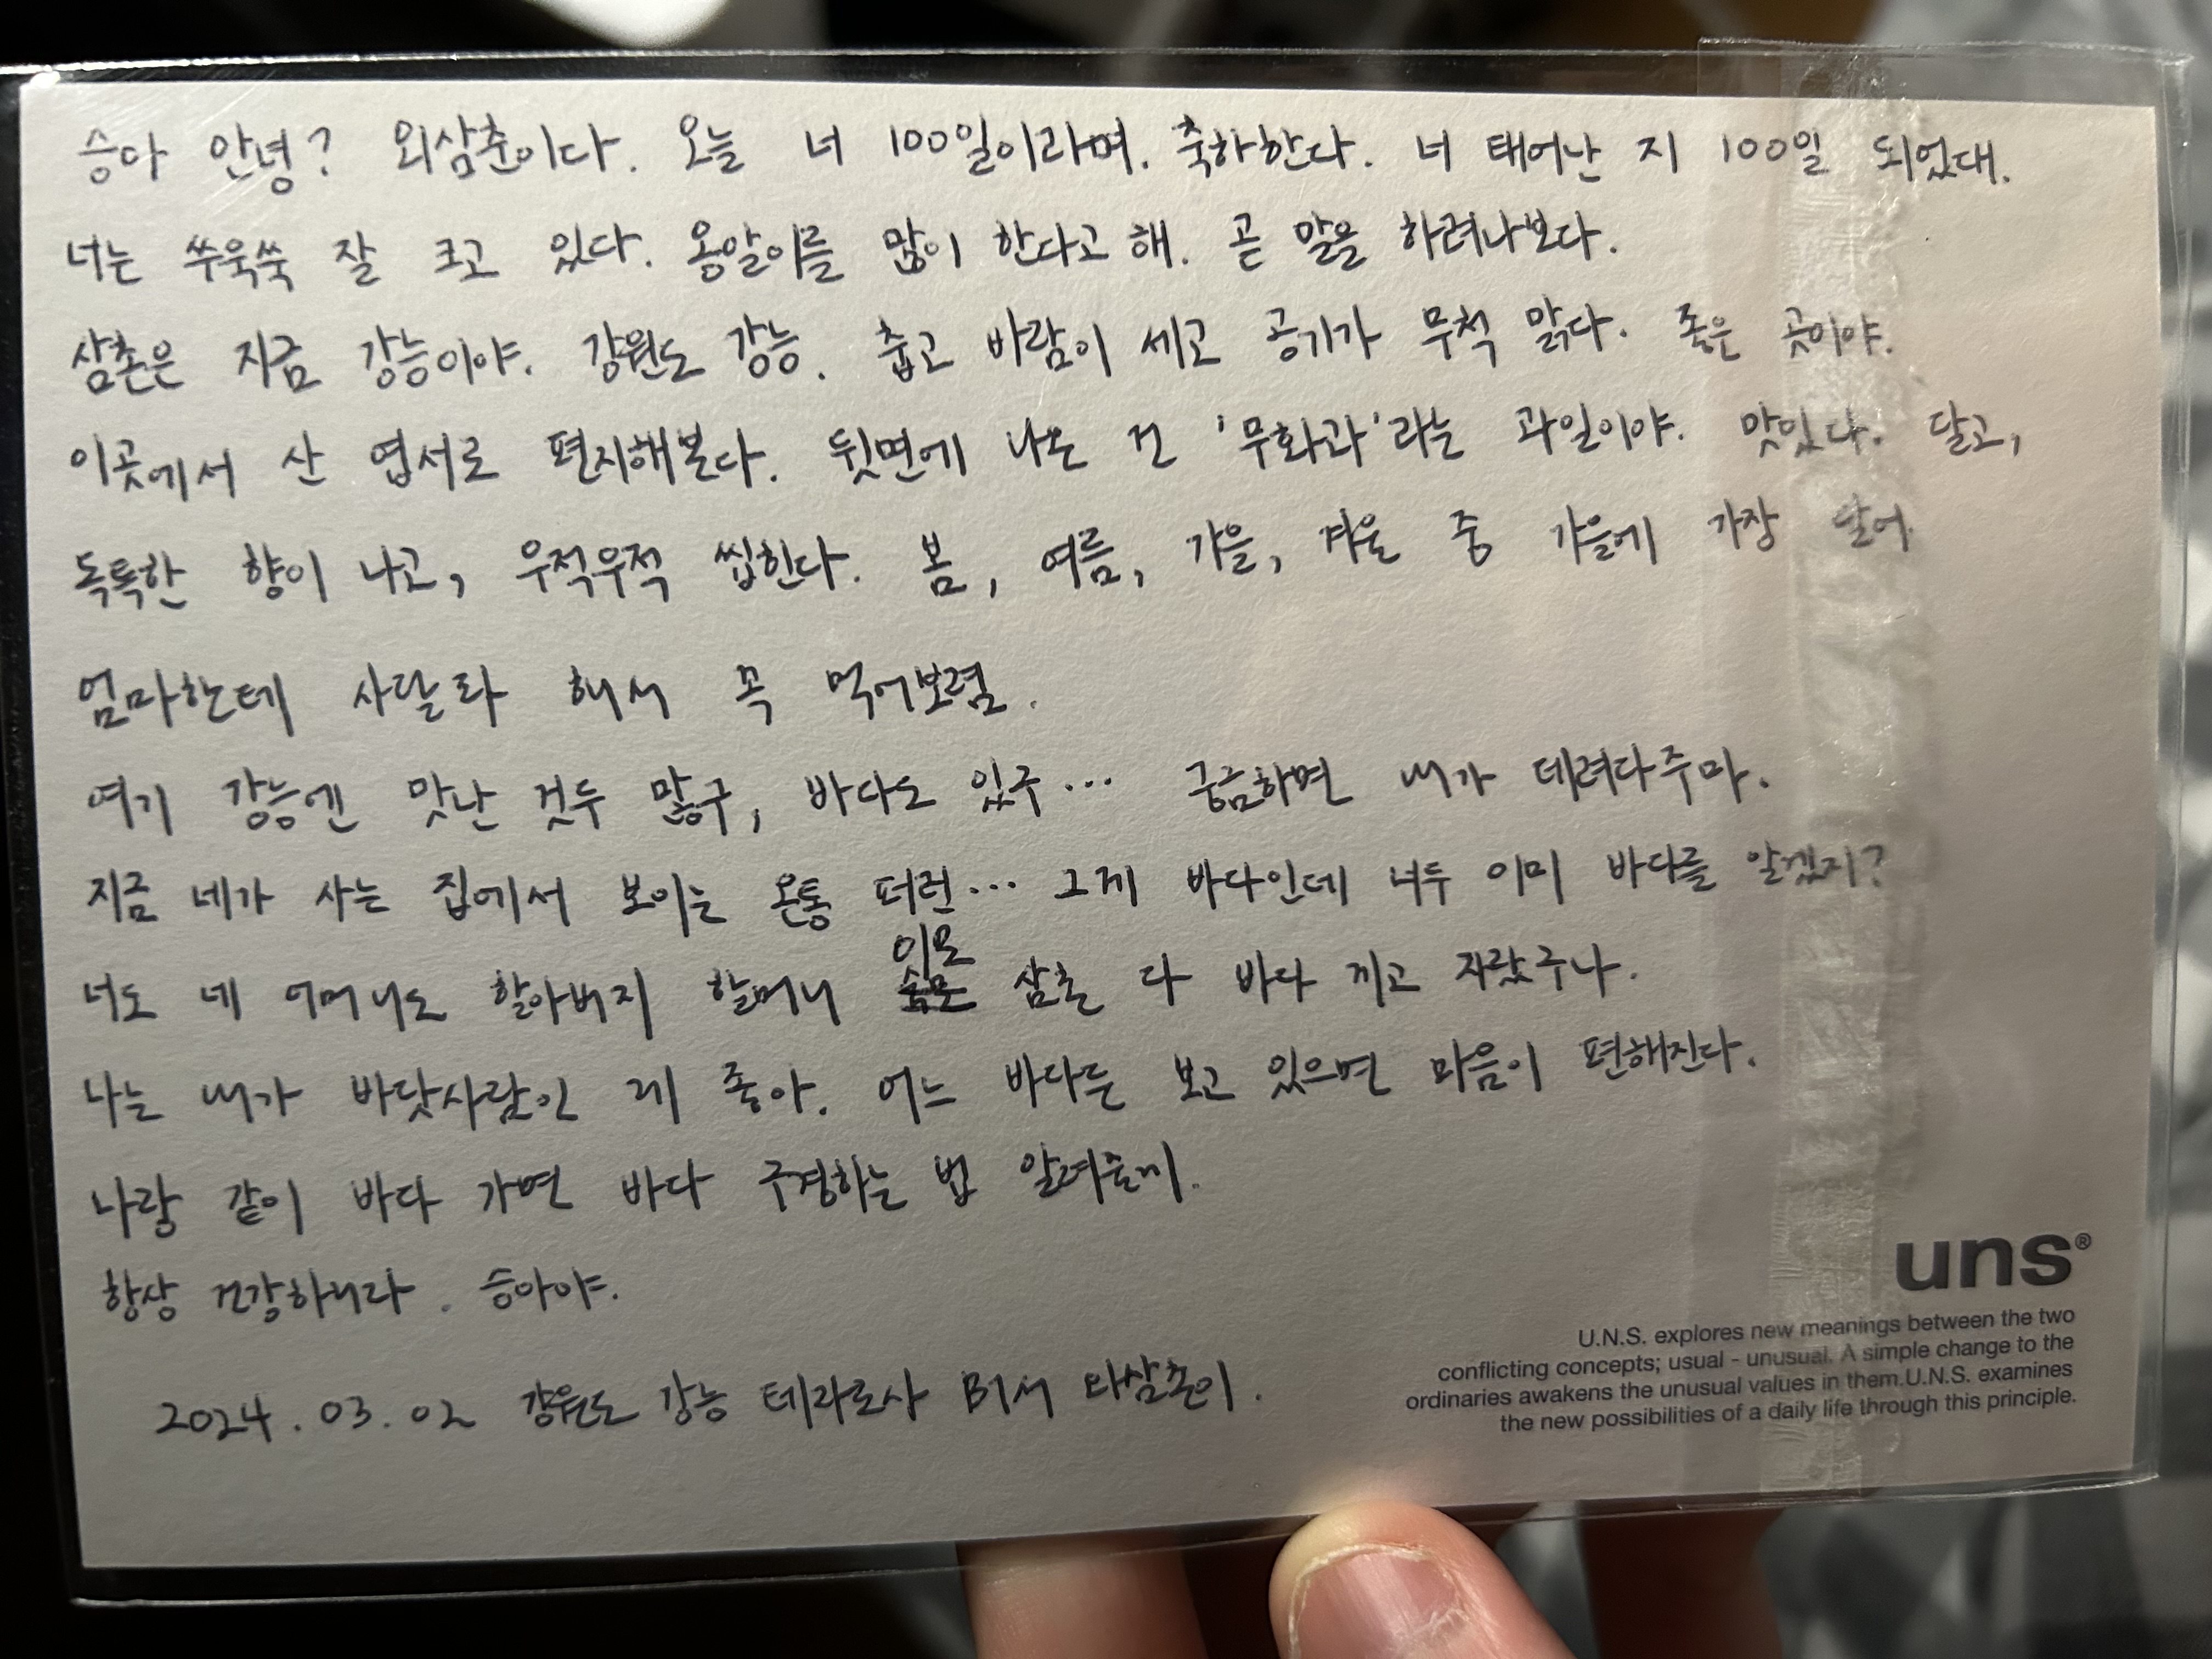 승아 안녕? 외삼춘이다. 오늘 너 100일이라며. 축하한다. 너 태어난 지 100일 되었대.
너는 쑤욱쑥 잘 크고 있다. 옹알이를 많이 한다고 해. 곧 말을 하려나보다.
삼촌은 지금 강능이야. 강원도 강능. 춥고 바람이 세고 공기가 무척 맑다. 좋은 곳이야.
이곳에서 산 엽서로 편지해본다. 뒷면에 나온 건 '무화과'라는 과일이야. 맛있다. 달고,
독특한 향이 나고, 우적우적 씹힌다. 봄, 여름, 가을, 겨울 중 가을에 가장 달어.
엄마한테 사달라 해서 꼭 먹어보렴.
여기 강능엔 맛난 것두 많구, 바다도 있구... 궁금하면 내가 데려다주마.
지금 네가 사는 집에서 보이는 온통 퍼런... 그게 바다인데 너두 이미 바다를 알겠지?
이모
너도 네 어머니도 할아버지 할머니 삼촌 다 바다 끼고 자랐구나.
나는 내가 바닷사람인 게 좋아. 어느 바다든 보고 있으면 마음이 편해진다.
나랑 같이 바다 가면 바다 구경하는 법 알려줄게.
항상 건강하니라. 승아야.
2024.03.02 강원도 강능 테라로사 에서 외삼춘이.
uns®
U.N.S. explores new meanings between the two
conflicting concepts; usual - unusual. A simple change to the
ordinaries awakens the unusual values in them.U.N.S. examines
the new possibilities of a daily life through this principle.